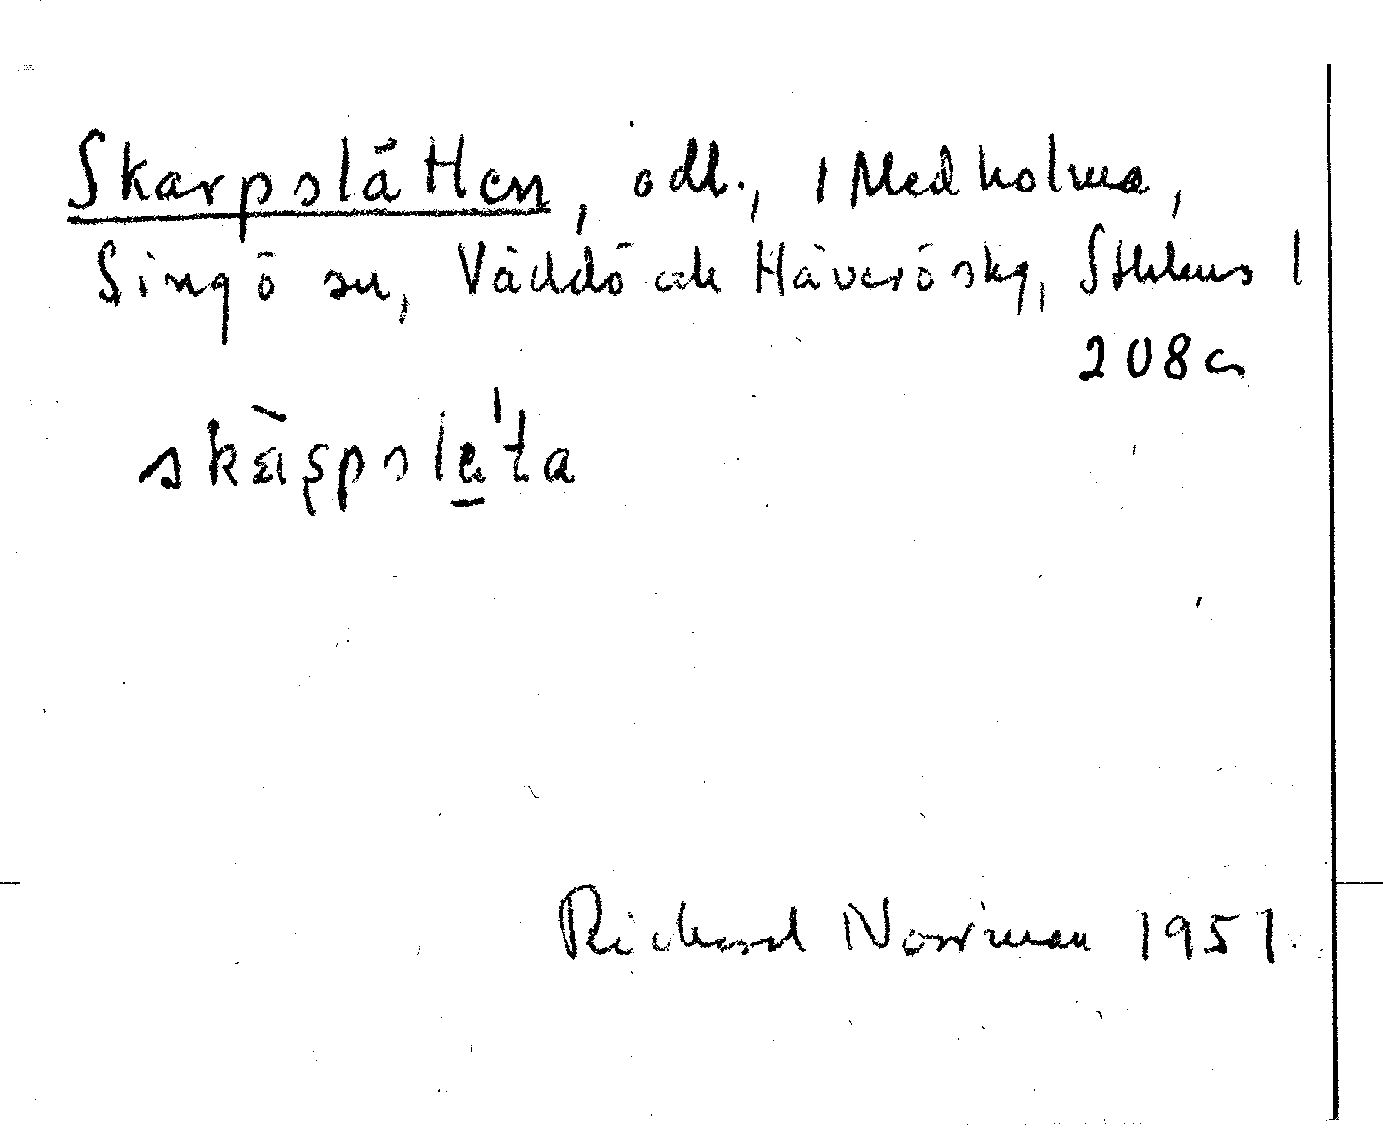 Skarpslåtten, odl., i Medholma,
Singö sn, Väddö och Häverö skg, Sthlms l
208a
Richard Norrman 1951.